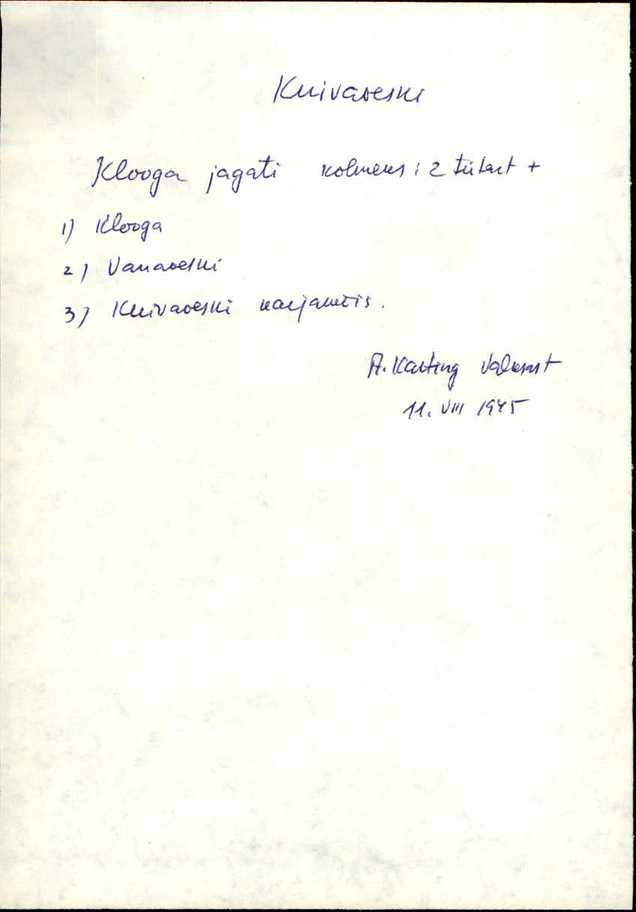 Kuivaveski
Klooga jagati kolmeks: 2 tütart +
1) Klooga
2) Vanaveski
3) Kuivaveski karjamõis.
A. Karting
11. VIII 1945